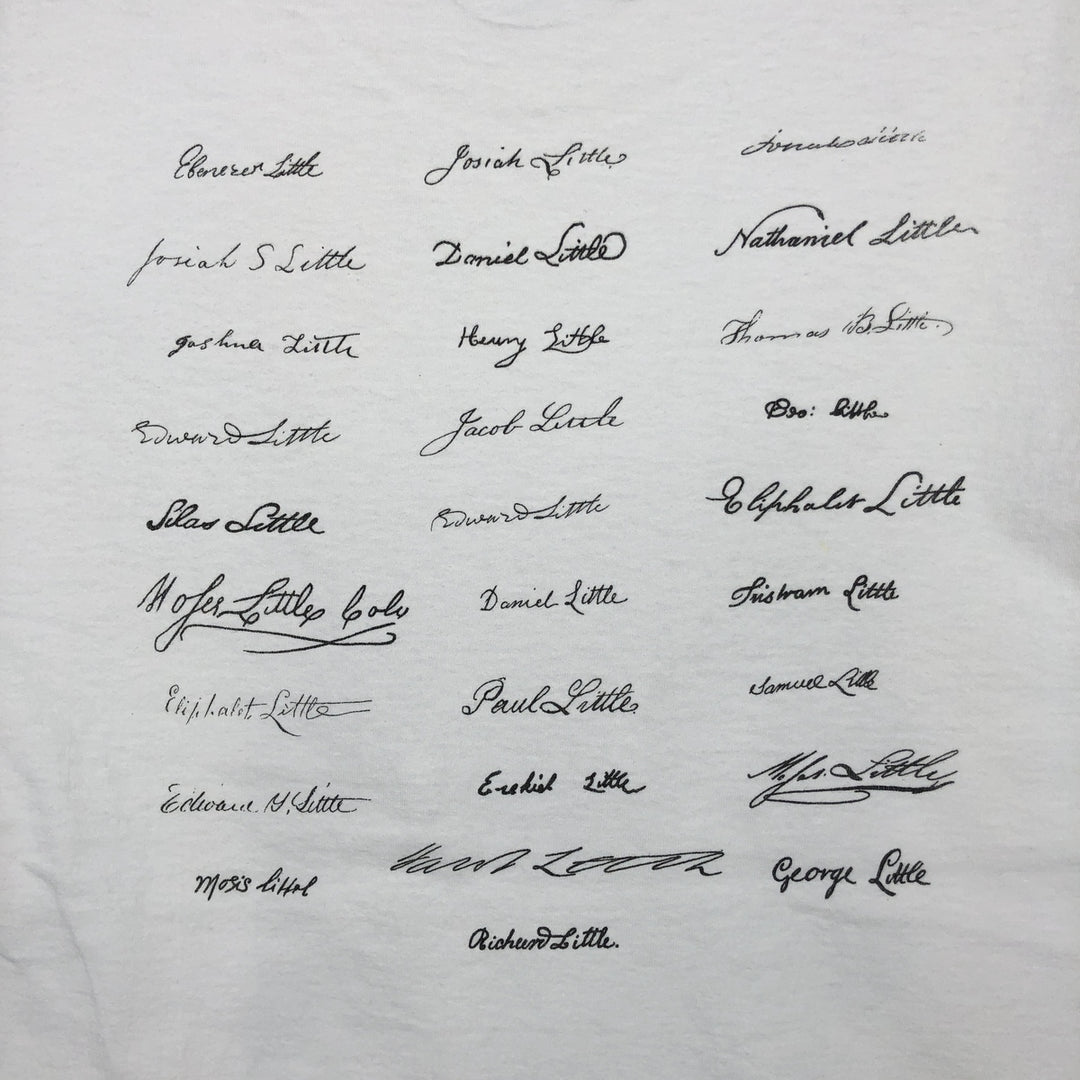 Ebenezer Little Josiah Little
Josiah S Little Daniel Little Nathaniel Little
Joshua Little Henry Little Thomas B. Little.
Edward Little Jacob Little Geo: Little
Silas Little Edward Little Eliphalet Little
Moses Little Daniel Little Tristram Little
Eliphalet Little Paul Little Samuel Little
Edward Little Ezekiel Little Moses Little
Mosis littel George Little
Richard Little.